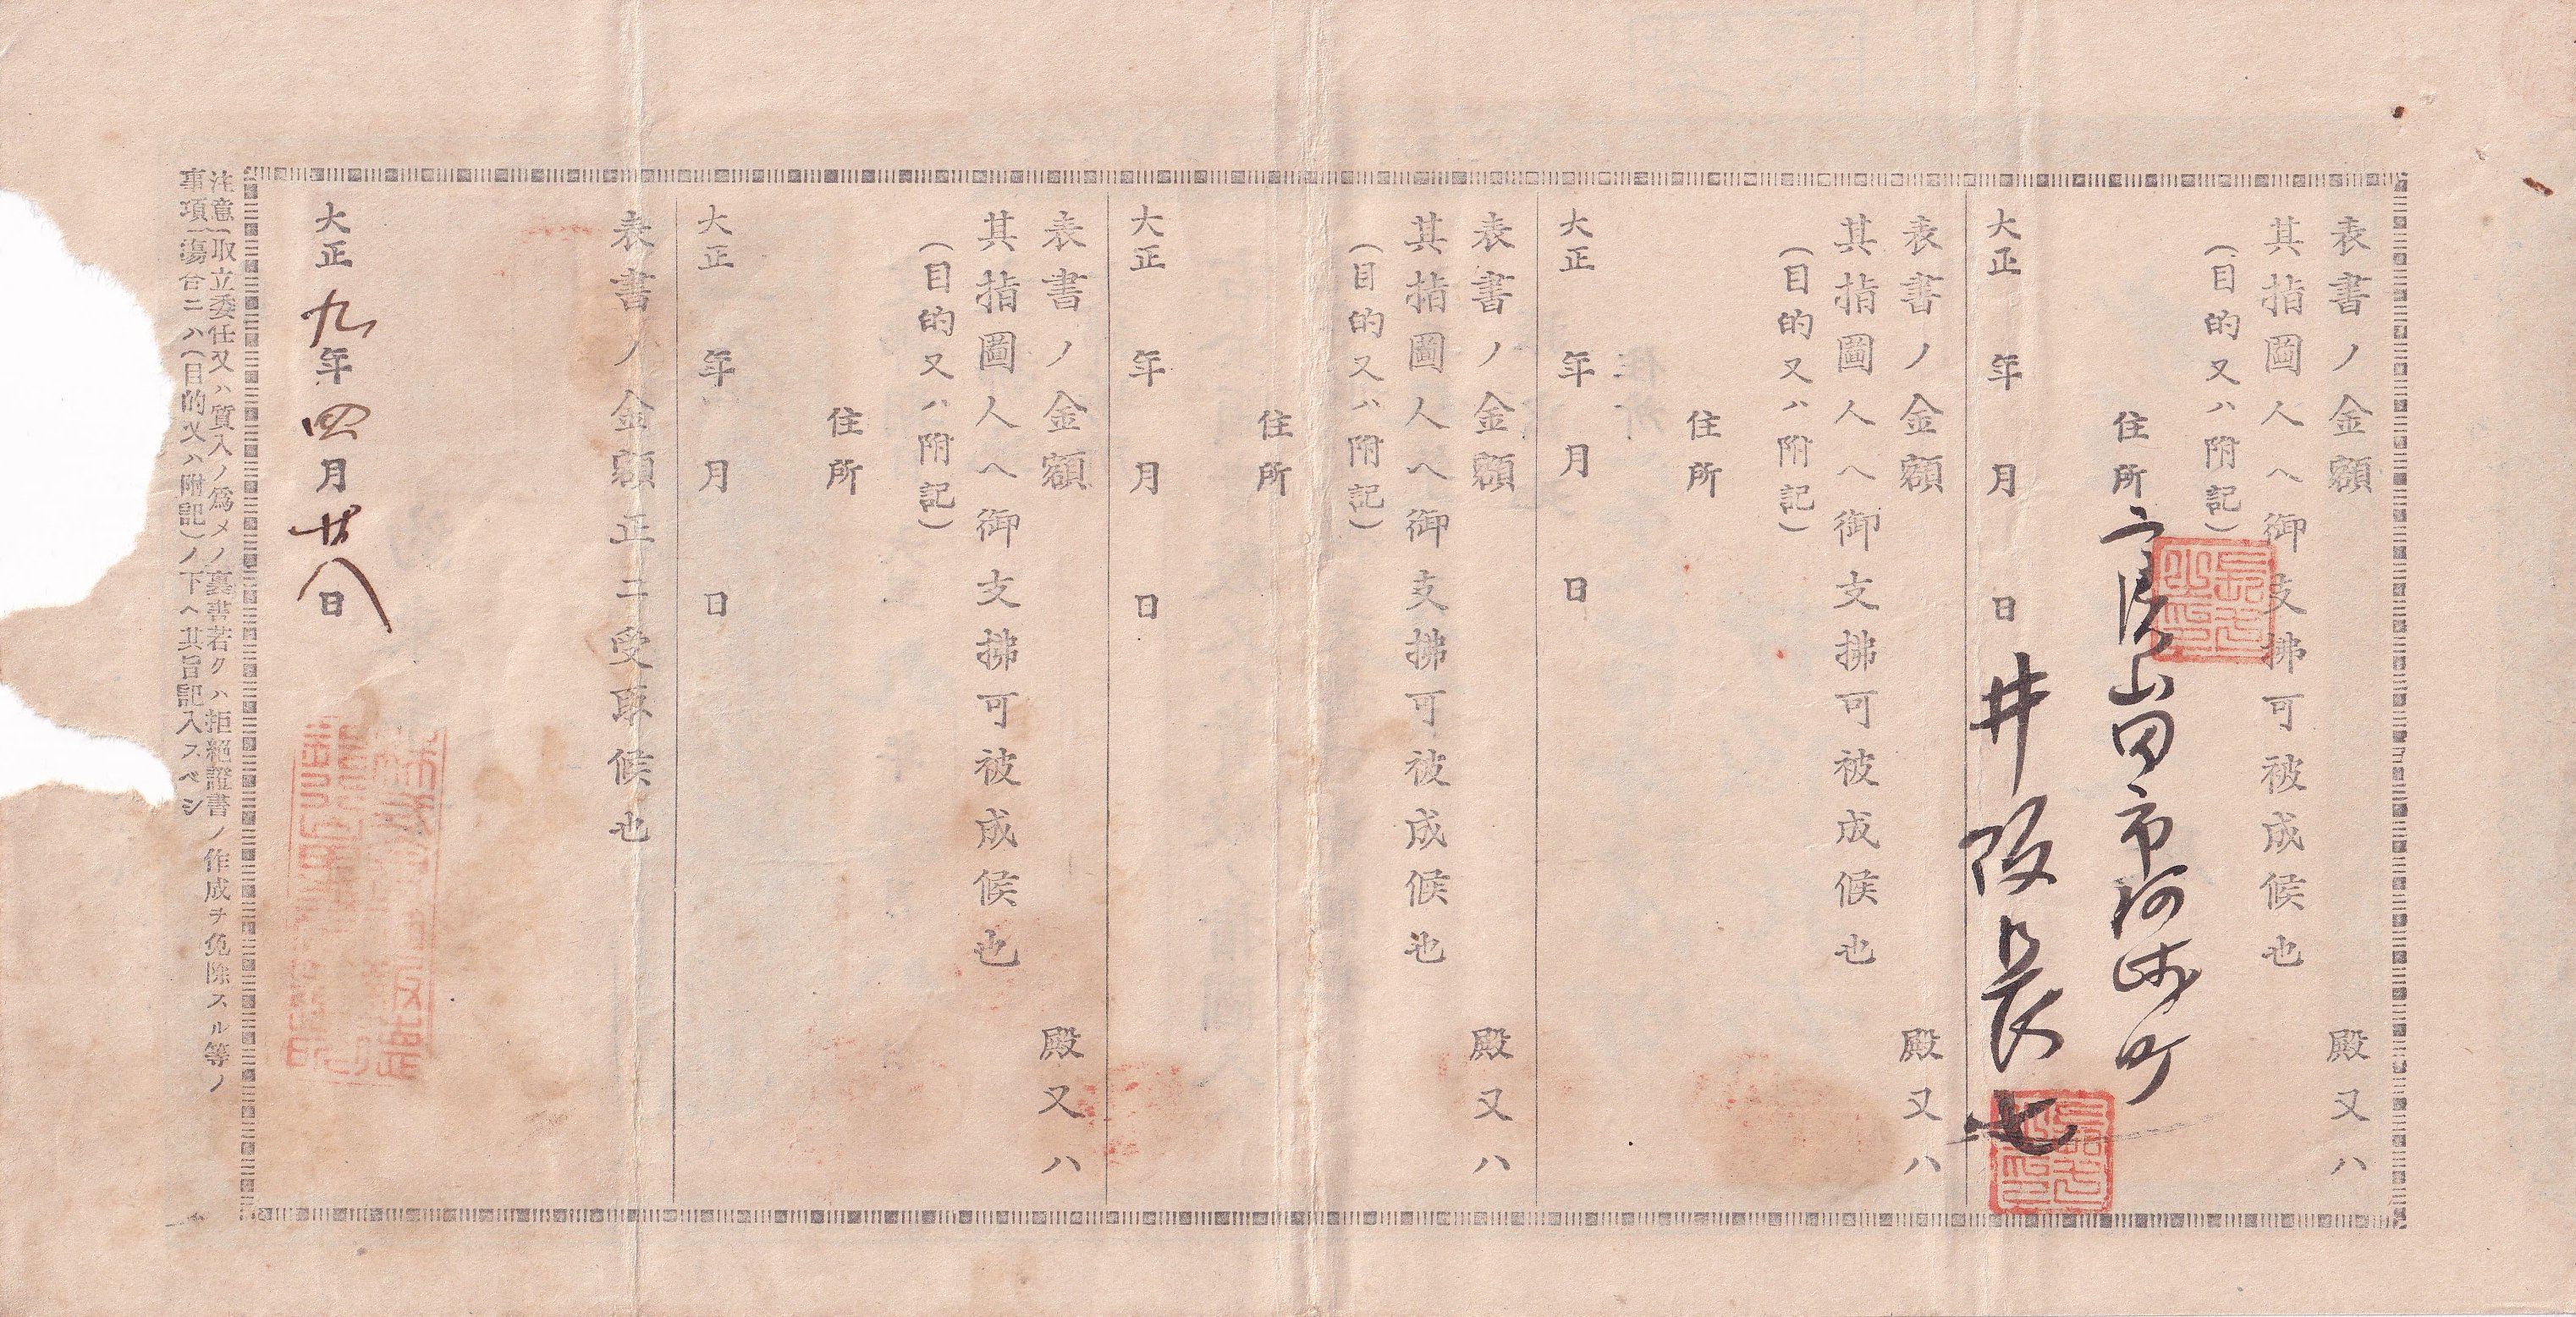 表書ノ金額 殿又ハ
其指圖人ヘ御支拂可被成候也
(目的又ハ附記)
住所 山田市河崎町
大正 年 月 日 井阪長七
表書ノ金額 殿又ハ
其指圖人ヘ御支拂可被成候也
(目的又ハ附記)
住所
大正 年 月 日
表書ノ金額 殿又ハ
其指圖人ヘ御支拂可被成候也
(目的又ハ附記)
住所
大正 年 月 日
表書ノ金額 殿又ハ
其指圖人ヘ御支拂可被成候也
(目的又ハ附記)
住所
大正 年 月 日
表書ノ金額正ニ受取候也
大正九年四月廿八日
注意 取立委任又ハ質入ノ爲メノ裏書若クハ拒絕證書ノ作成ヲ免除スル等ノ
事項 場合ニハ(目的又ハ附記)ノ下ヘ其旨記入スベシ